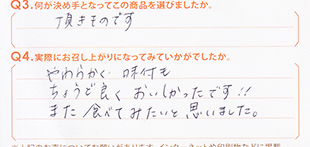 Q3.何が決め手となってこの商品を選びましたか。
頂きものです
Q4.実際にお召し上がりになってみていかがでしたか。
やわらかく 味付も
ちょうど良く おいしかったです!!
また 食べてみたいと 思いました。